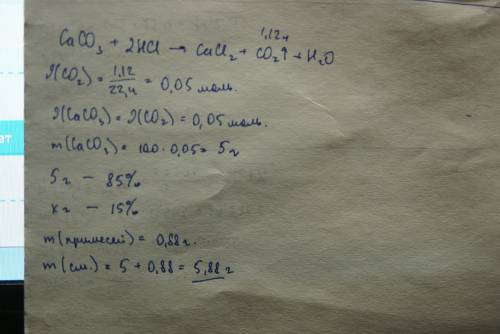 1,12л
CaCO₃ + 2HCl → CaCl₂ + CO₂↑ + H₂O
ν(CO₂) = 1,12/22,4 = 0,05 моль.
ν(CaCO₃) = ν(CO₂) = 0,05 моль.
m(CaCO₃) = 100 · 0,05 = 5г
5г — 85%
xг — 15%
m(примесей) = 0,88г.
m(см.) = 5 + 0,88 = 5,88г